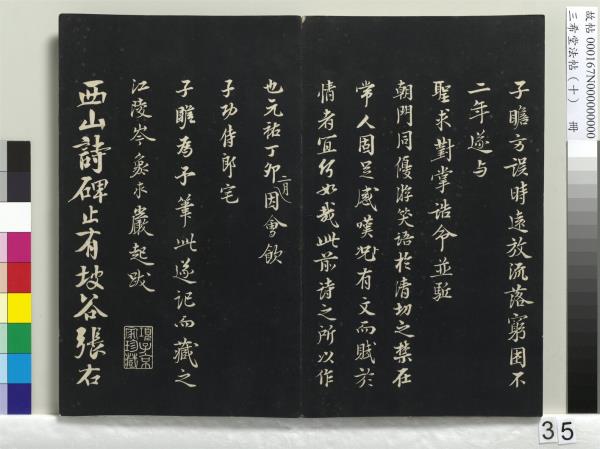 故帖 000167N000000000
三希堂法帖（十） 冊
子瞻方誤時遠放流落窮困不
二年遂与
聖求對掌誥命並駈
朝門同優游笑語於清切之禁在
常人固足感嘆况有文而賦於
情者宜何如哉此前诗之所以作
也元祐丁卯二月因會飲
子功侍郎宅
子瞻為予筆此遂记而藏之
江陵岑象求巖起跋
項子京家珍藏
西山詩碑止有坡谷張右
35